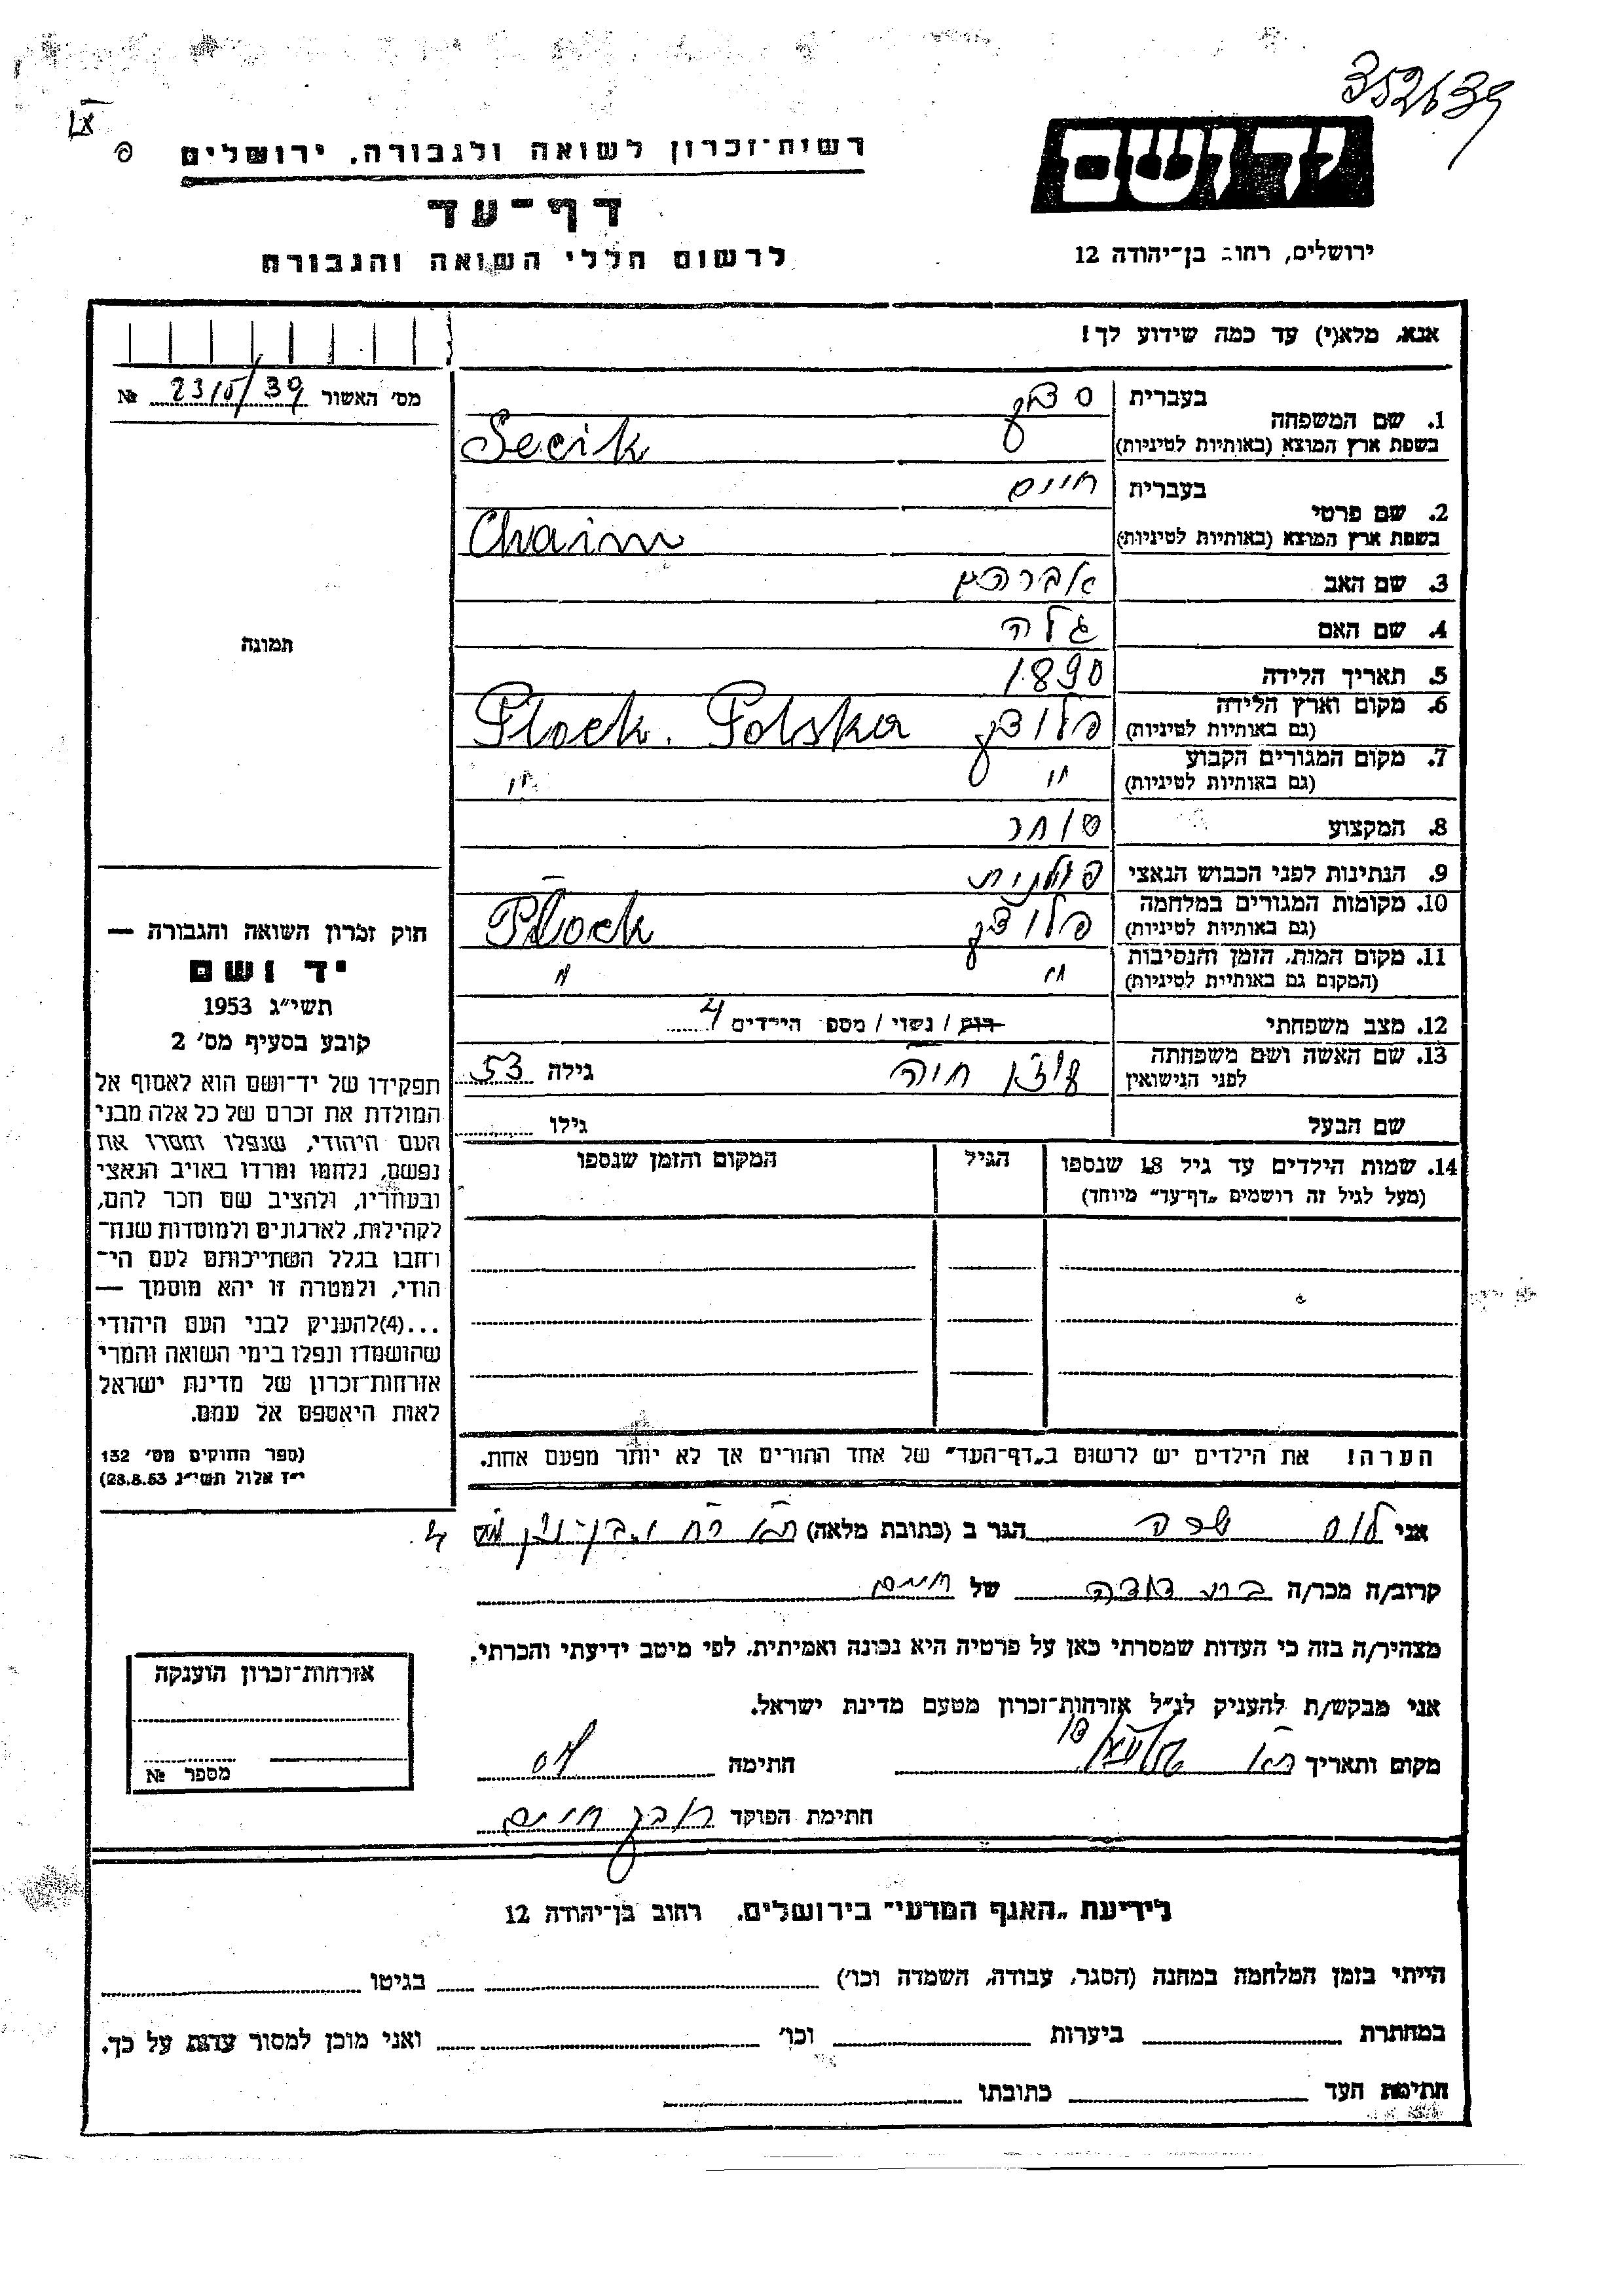 352639
רשות־זכרון לשואה ולגבורה. ירושלים
יד ושם
דף־עד
לרשום חללי השואה והגבורה
ירושלים, רחוב בן־יהודה 12
אנא, מלא(י) עד כמה שידוע לך!
מס׳ האשור № 2310/39
1. שם המשפחה בעברית
בשפת ארץ המוצא (באותיות לטיניות) Secik
2. שם פרטי בעברית חיים
בשפת ארץ המוצא (באותיות לטיניות) Chaim
3. שם האב אברהם
4. שם האם גלה
5. תאריך הלידה 1890
6. מקום וארץ הלידה (גם באותיות לטיניות) פלוצק Plock. Polska
7. מקום המגורים הקבוע (גם באותיות לטיניות) " "
8. המקצוע סוחר
9. הנתינות לפני הכבוש הנאצי פולנית
10. מקומות המגורים במלחמה (גם באותיות לטיניות) פלוצק Plock
11. מקום המות, הזמן והנסיבות (המקום גם באותיות לטיניות) " "
12. מצב משפחתי רווק / נשוי / מספ הילדים 4
13. שם האשה ושם משפחתה לפני הנישואין חיה גילה 53
שם הבעל גילו
14. שמות הילדים עד גיל 18 שנספו
(מעל לגיל זה רושמים „דף־עד" מיוחד)
הגיל
המקום והזמן שנספו
הערה! את הילדים יש לרשום ב„דף־העד" של אחד ההורים אך לא יותר מפעם אחת.
תמונה
חוק זכרון השואה והגבורה —
יד ושם
תשי״ג 1953
קובע בסעיף מס׳ 2
תפקידו של יד־ושם הוא לאסוף אל
המולדת את זכרם של כל אלה מבני
העם היהודי, שנפלו ומסרו את
נפשם, נלחמו ומרדו באויב הנאצי
ובעוזריו, ולהציב שם וזכר להם,
לקהילות, לארגונים ולמוסדות שנח־
רבו בגלל השתייכותם לעם הי־
הודי, ולמטרה זו יהא מוסמך —
...(4)להעניק לבני העם היהודי
שהושמדו ונפלו בימי השואה והמרי
אזרחות־זכרון של מדינת ישראל
לאות היאספם אל עמם.
(ספר החוקים מס׳ 132
י״ז אלול תשי״ג 28.8.53)
אני שרה הגר ב (כתובת מלאה)
קרוב/ה מכר/ה בת דודה של חיים
מצהיר/ה בזה כי העדות שמסרתי כאן על פרטיה היא נכונה ואמיתית, לפי מיטב ידיעתי והכרתי.
אני מבקש/ת להעניק לנ״ל אזרחות־זכרון מטעם מדינת ישראל.
מקום ותאריך חתימה
חתימת הפוקד חיים
אזרחות־זכרון הוענקה
מספר №
לידיעת „האגף המדעי" בירושלים. רחוב בן־יהודה 12
הייתי בזמן המלחמה במחנה (הסגר, עבודה, השמדה וכו׳) בגיטו
במחתרת ביערות וכו׳ ואני מוכן למסור עדות על כך.
חתימת העד כתובתו